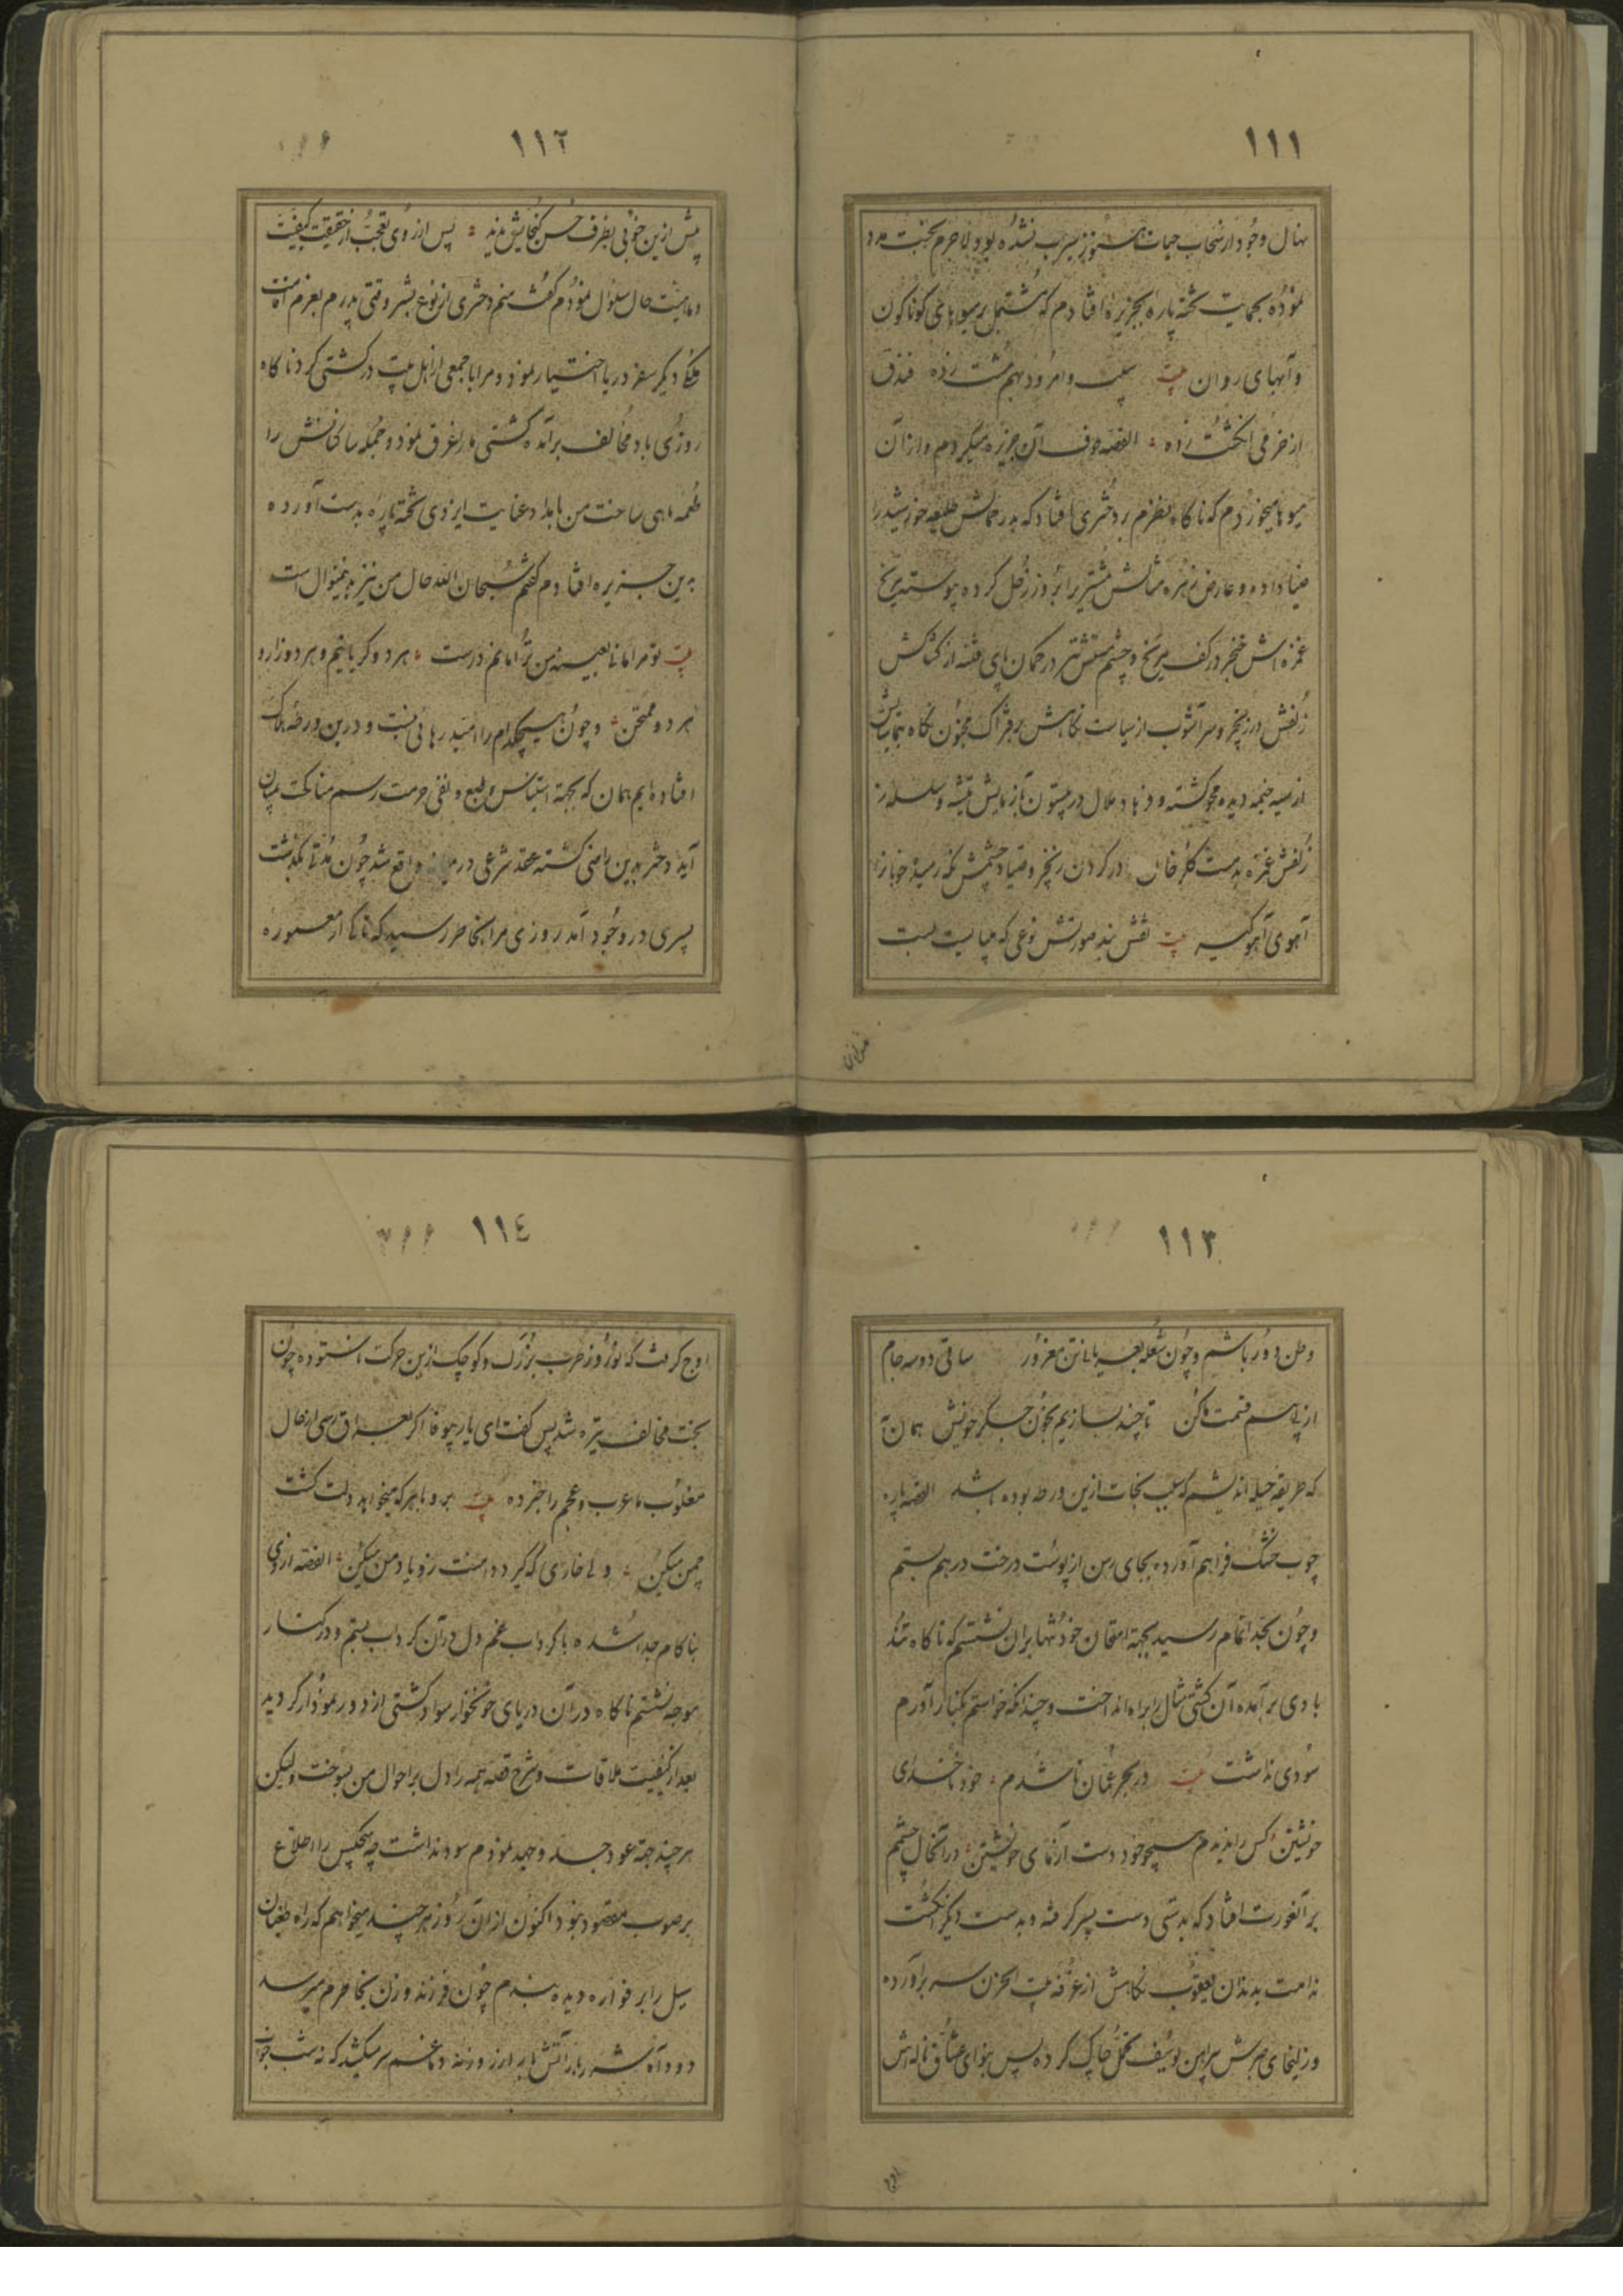 ۱۱۱
نهال وجود از سحاب حیات هنوز سیرب نشده بود لاجرم بخت مدد
نموده بحمایت تخته پاره بجزیره افتادم که مشتمل بر میوهای کوناکون
وآبهای روان بیت سیب وامرود بهم مشت زده فندق
از خرمی انکشت زده القصه جوف آن جزیره میکردم وازان
میوها میخوردم که ناکاه نظرم بر دختری افتاد که بدر جمالش طلیعه خورشید را
ضیا داده وعارض زهره مثالش مشتریرا بروز زحل کرده پیوسته مریخ
غمزه اش خنجر در کف مریخ وچشم مستش تیر در کمان پای فتنه از کشاکش
زلفش در زنجیر وسر آشوب از سیاست نکاهش بر فتراک مجنون نکاه بتماشایش
از سیه خیمه دیده محو کشته وفرهاد ملال در بیستون بآزمایش تیشه وسلسله
زلفش غمزه بدست کلرخان در کردن زنجیر وصیاد چشمش
آهوی آهوکیر بیت نقش بند صورتش نوعی که میبایست بست
۱۱۲
پیش ازین خوبی بظرف حسن کنجایش ندید پس از روی تعجب از حقیقت کیفیت
وماهیت حال سئوال نمودم کفت منم دختری از نوع بشر وقتی پدرم بعزم اقامت
ملک دیکر سفر دریا اختیار نمود ومرا با جمعی از اهل بیت در کشتی کرد ناکاه
روزی باد مخالف برآمده کشتی ما را غرق نمود وجمله ساکنانش را
طعمه ماهی ساخت من بامداد عنایت ایزدی تخته پاره بدست آورده
بدین جزیره افتادم کفتم سبحان الله حال من نیز بدینمنوال است
بیت تو مرا مانا بعینه من ترا مانم درست هر دو کریانیم وهر دو زار و
هر دو ممتحن وچون هیچکدام را امید رهائی نیست ودرین ورطه هلاک
افتاده ایم همان که بجهة استیناس طبع ونفی حرمت رسم مناکحت بمیان
آید دختر بدین راضی کشته عقد شرعی در میانه واقع شد چون مدتی بکذشت
پسری در وجود آمد روزی مرا بخاطر رسید که تا کی از معموره
۱۱۳
وطن دور باشم وچون شعله بعریانی تن مغرور ساقی دوسه جام
از پی هم قسمت ما کن تا چند بسازیم بخون جکر خویش همان به
که طریقه حیله اندیشم که سبب نجات ازین ورطه بوده باشد القصه پاره
چوب خشک فراهم آورده بجای رسن از پوست درخت درهم بستم
وچون بحد اتمام رسید بجهة امتحان خود تنها بران نشستم که ناکاه تند
بادی برآمده آن کشتی مثال را براه انداخت وچندانکه خواستم بکنار آورم
سودی نداشت بیت در بحر عمان نا شدم خود ناخدای
خویشتن کس را ندیدم همچو خود دست آزمای خویشتن درآنحال چشمم
برآنعورت افتاد که بدستی دست پسر کرفته وبدست دیکر انکشت
ندامت بدندان یعقوب نکاهش از غرفه بیت الحزن سر برآورده
وزلیخای صبرش پیراهن یوسف تحمل چاک کرده پس بنوای عشاق ناله اش
۱۱۴
اوج کرفت که نوروز عرب بزرک وکوچک ازین حرکت ناستوده چون
بخت مخالف تیره شد پس کفت ای یار بیوفا اکر بعراق رسی از حال
مغلوب ما عرب وعجم را خبر ده بیت برو با هر که میخواهد دلت کشت
چمن میکن ولی خاری که کیرد دامنت زو یاد من میکن القصه ازوی
بناکام جدا شده با کرداب غم دل در آن کرداب بستم ودر کنار
موجه نشستم ناکاه در آن دریای خونخوار سواد کشتی از دور نمودار کردید
بعد از کیفیت ملاقات وشرح قصه همه را دل بر احوال من بسوخت ولیکن
هر چند جهة عود جد وجهد نمودم سود نداشت چه هیچکس را اطلاع
بر صوب مقصود نبود اکنون ازان روز هر چند میخواهم که راه طغیان
سیل را بر فواره دیده ببندم چون فرزند وزن بخاطرم میرسد
دود آه شرربار آتش بار از روزنه دماغم سر میکشد که نه شب خواب